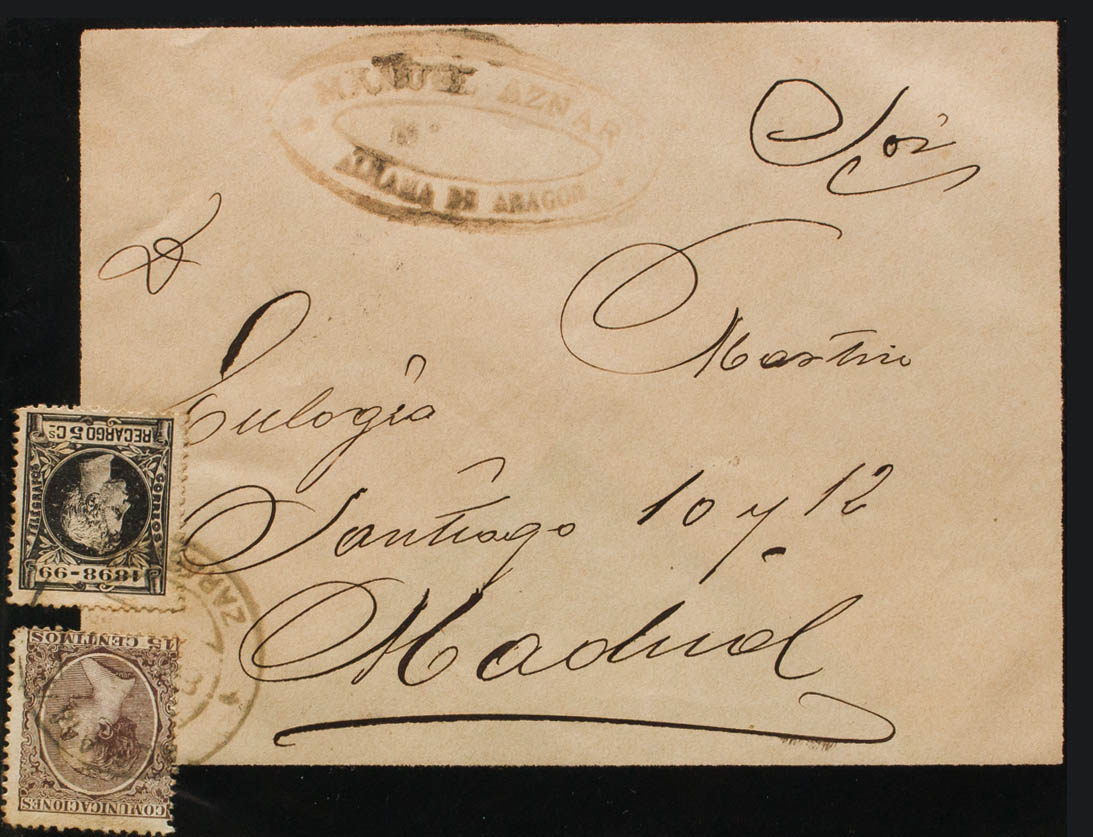 MANUEL AZNAR
ALHAMA DE ARAGON
D.
Eulogio Martin
Santiago 10 y 12
Madrid
RECARGO 5 Cs
CORREOS
TELEGRAFOS
1898-99
ZAR
15 CENTIMOS
COMUNICACIONES